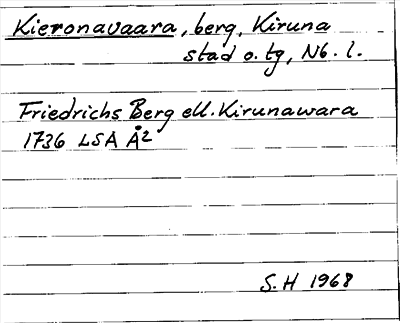 Kieronavaara, berg, Kiruna
stad o. tg, Nb. l.
Friedrichs Berg ell. Kirunawara
1736 LSA Å2
S. H 1968